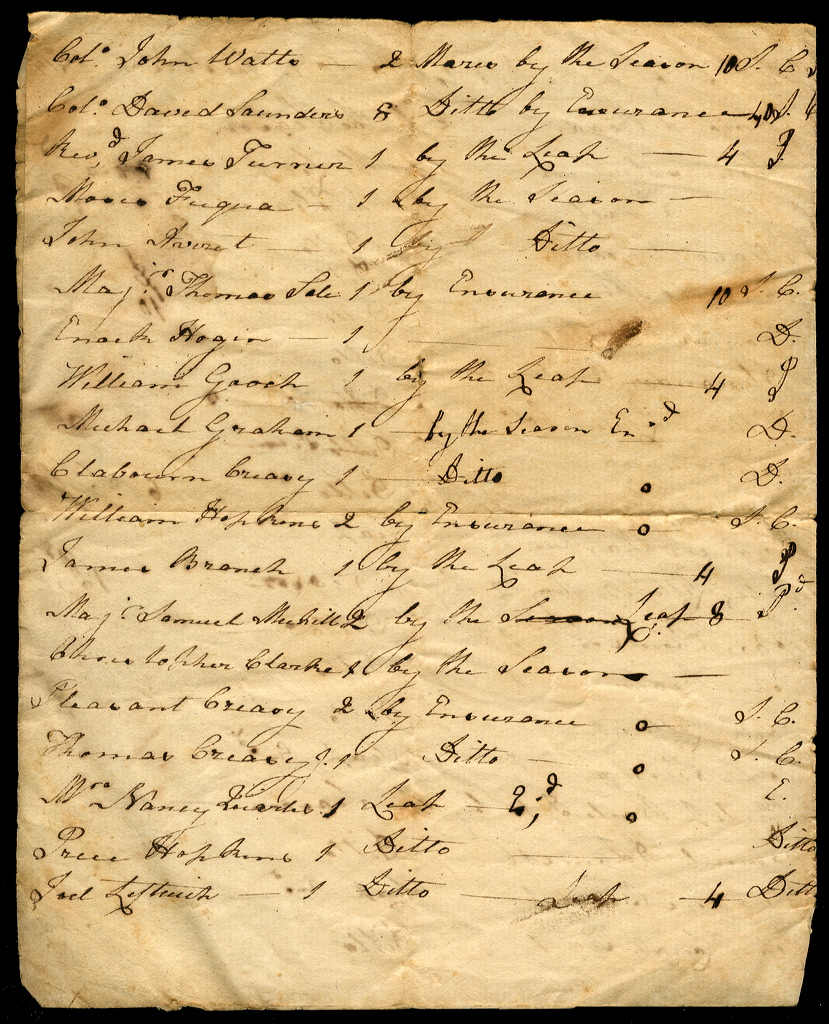 Colo. John Watts — 2 Mares by the Season 10 S. C
Colo. David Saunders 8 Ditto by Ensurance — 40 S. C
Revd. James Turner 1 by the Leap — 4 P.
Moses Fuqua — 1 by the Season —
John Averet — 1 by Ditto —
Majr. Thomas Sale 1 by Ensurance 10 S. C.
Enock Hogin — 1 — D.
William Gooch 1 by the Leap — 4 P
Michael Graham 1 — by the Season End D.
Clabourn Creasy 1 — Ditto 0 D.
William Hopkins 2 by Ensurance 0 S. C.
James Branch 1 by the Leap — 4 P
Majr. Samuel 2 by the Season Leap 8 Pd.
Christopher Clarke 1 by the Season —
Pleasant Creasy 2 by Ensurance 0 S. C.
Thomas Creasy J. 1 Ditto — 0 S. C.
Mrs Nancy 1 Leap — Ed; 0 E.
Price Hopkins 1 Ditto — Ditto
Joel Leftwich — 1 Ditto — Leap — 4 Ditto